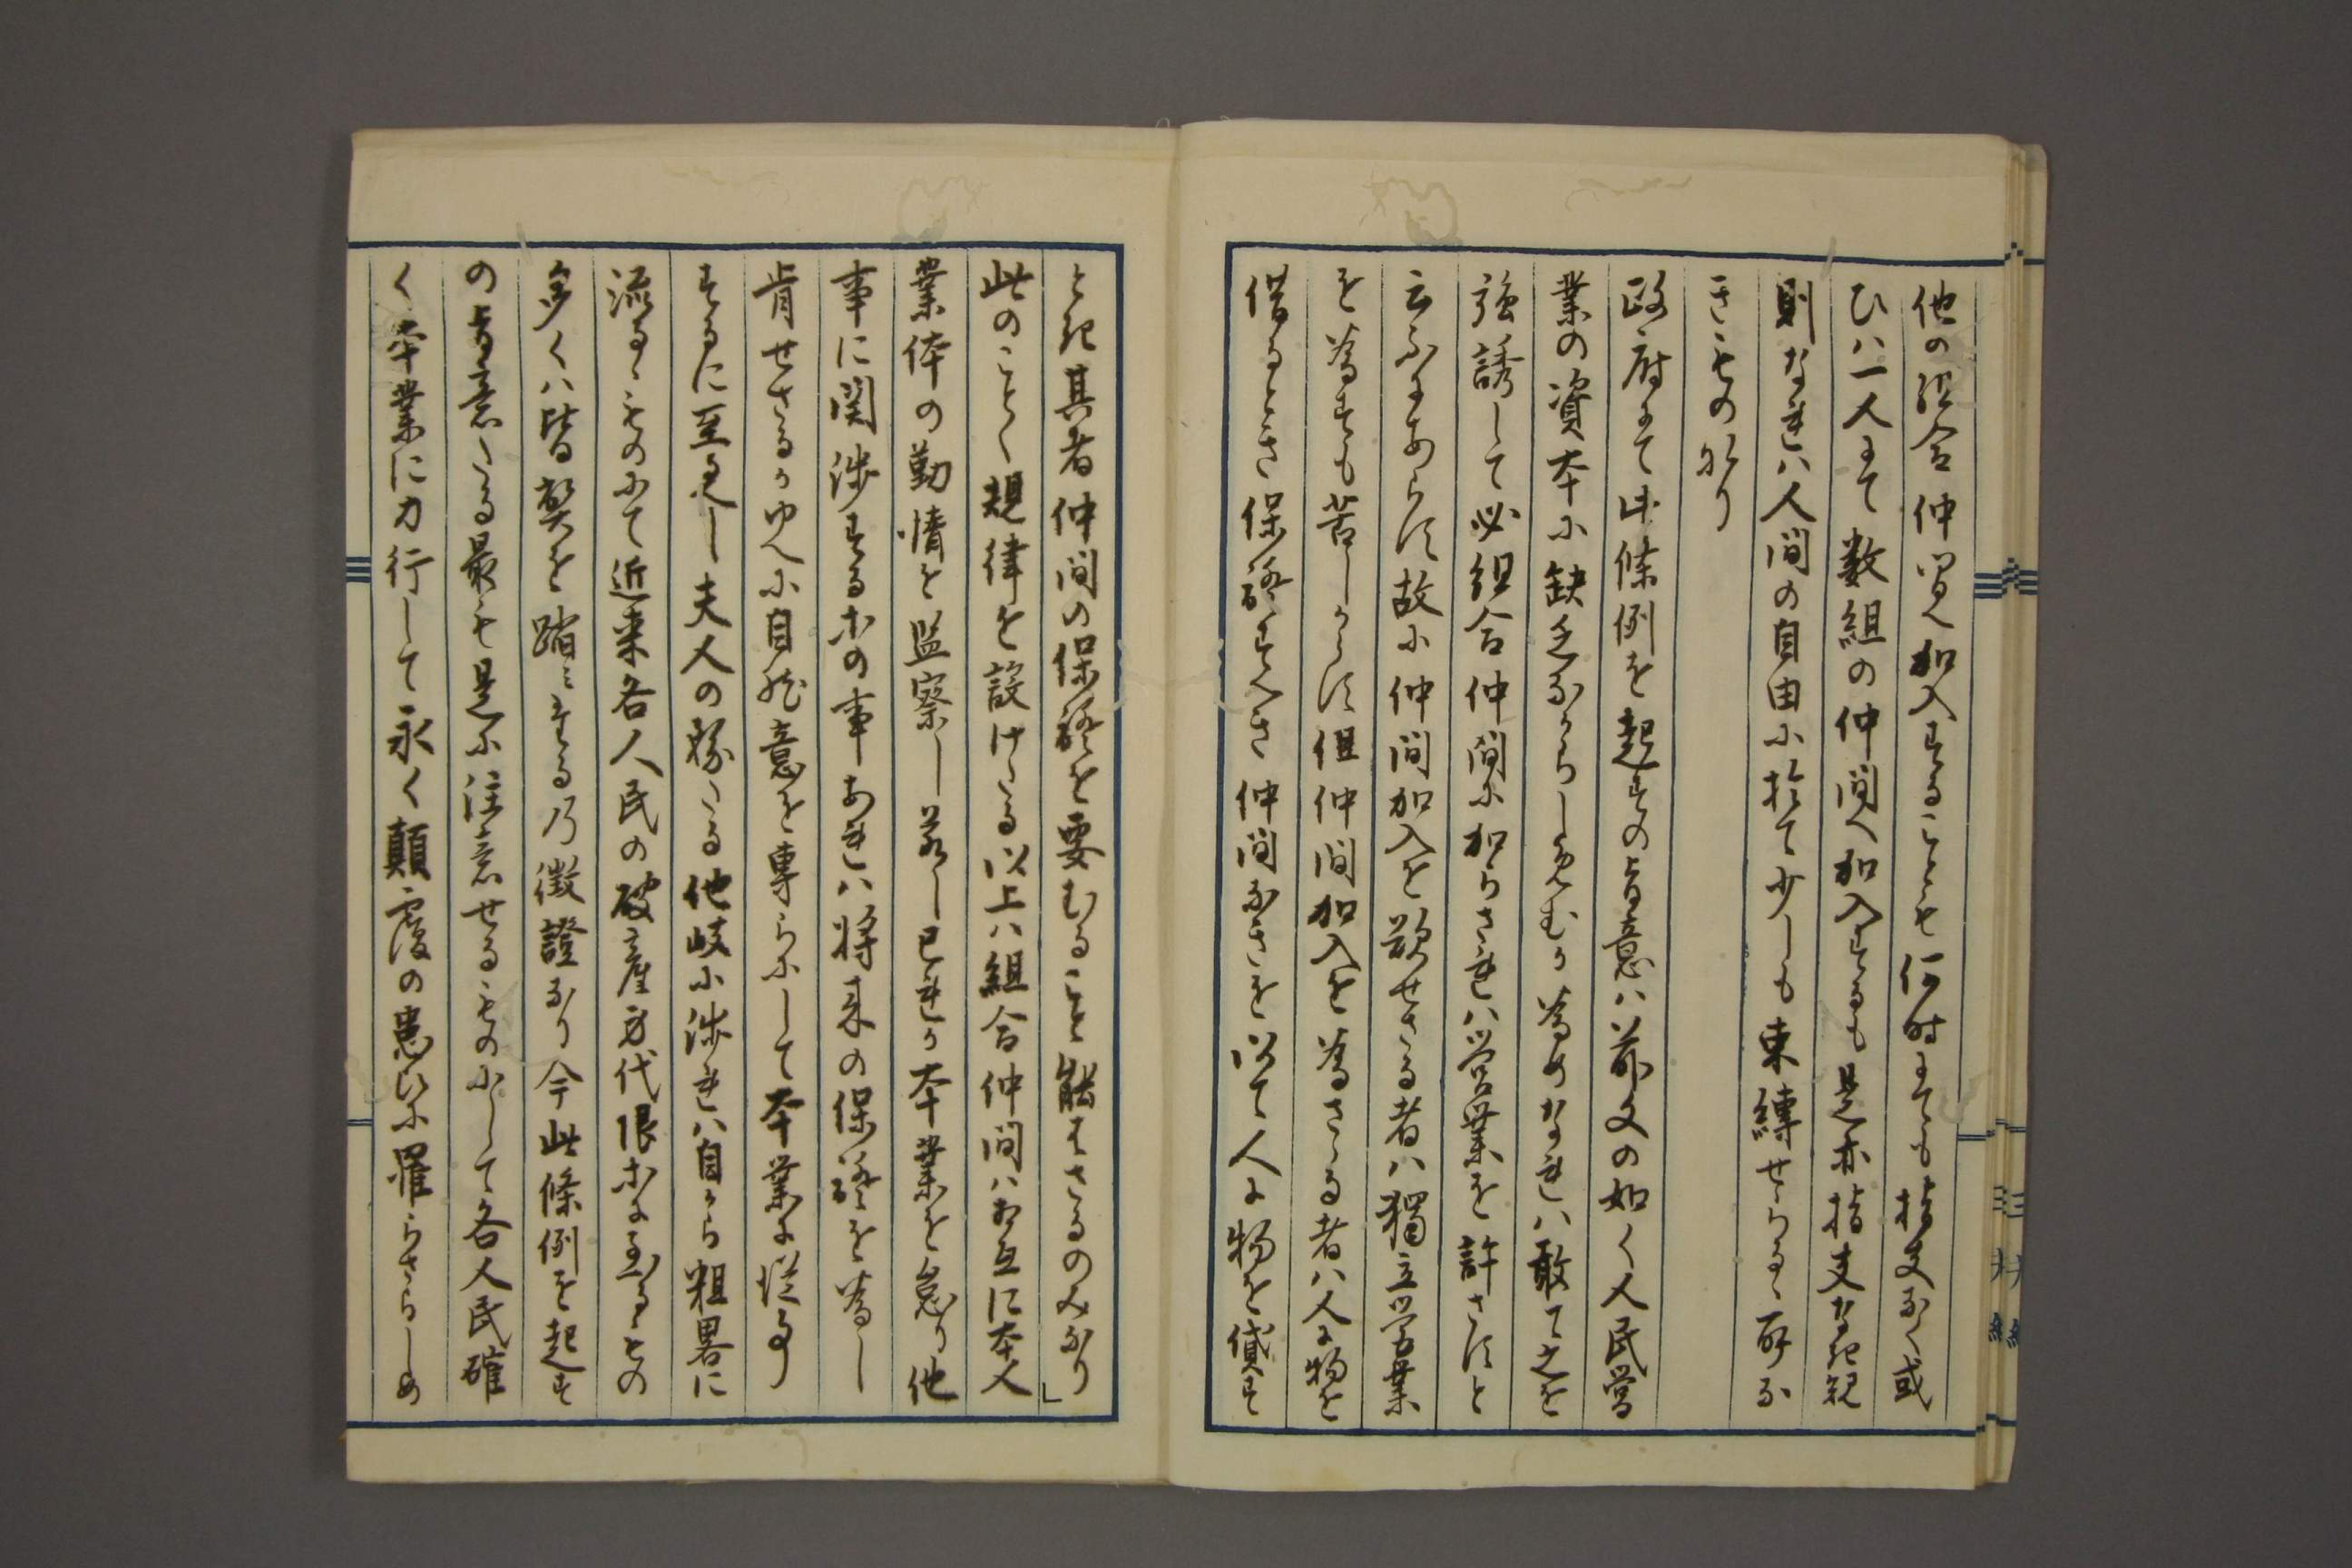 他の組合仲間へ加入することも何時にても指支なく或
ひハ一人にて数組の仲間へ加入するも是亦指支なき規
則なれハ人間の自由に於て少しも束縛せらるゝ所な
きものなり
政府にて此條例を起すの旨意ハ前文の如く人民営
業の資本に缺乏なからしめむか為めなれハ敢て之を
強誘して必組合仲間に加らされハ営業を許さすと
云ふにあらす故に仲間加入を欲せさる者ハ獨立営業
を為すも苦しからす但仲間加入を為さゝる者ハ人に物を
借るとき保證すへき仲間なきを以て人に物を貸す
とき其者仲間の保證を要むること能はさるのみなり」
此のことく規律を設けたる以上ハ組合仲間ハお互に本人
業体の勤惰を監察し若し己れか本業を怠り他
事に関渉する等の事あれハ将来の保證を為し
肯せさるかゆへに自然意を専らにして本業に従事
するに至るへし夫人の務たる他岐に渉れハ自から粗畧に
流るゝものにて近来各人民の破産身代限等に至るもの
多くハ皆弊を踏ミ来る乃徴證なり今此條例を起す
の旨意たる最も是に注意せるものにして各人民確
く本業に力行して永く顛覆の患ひに罹らさらしめ